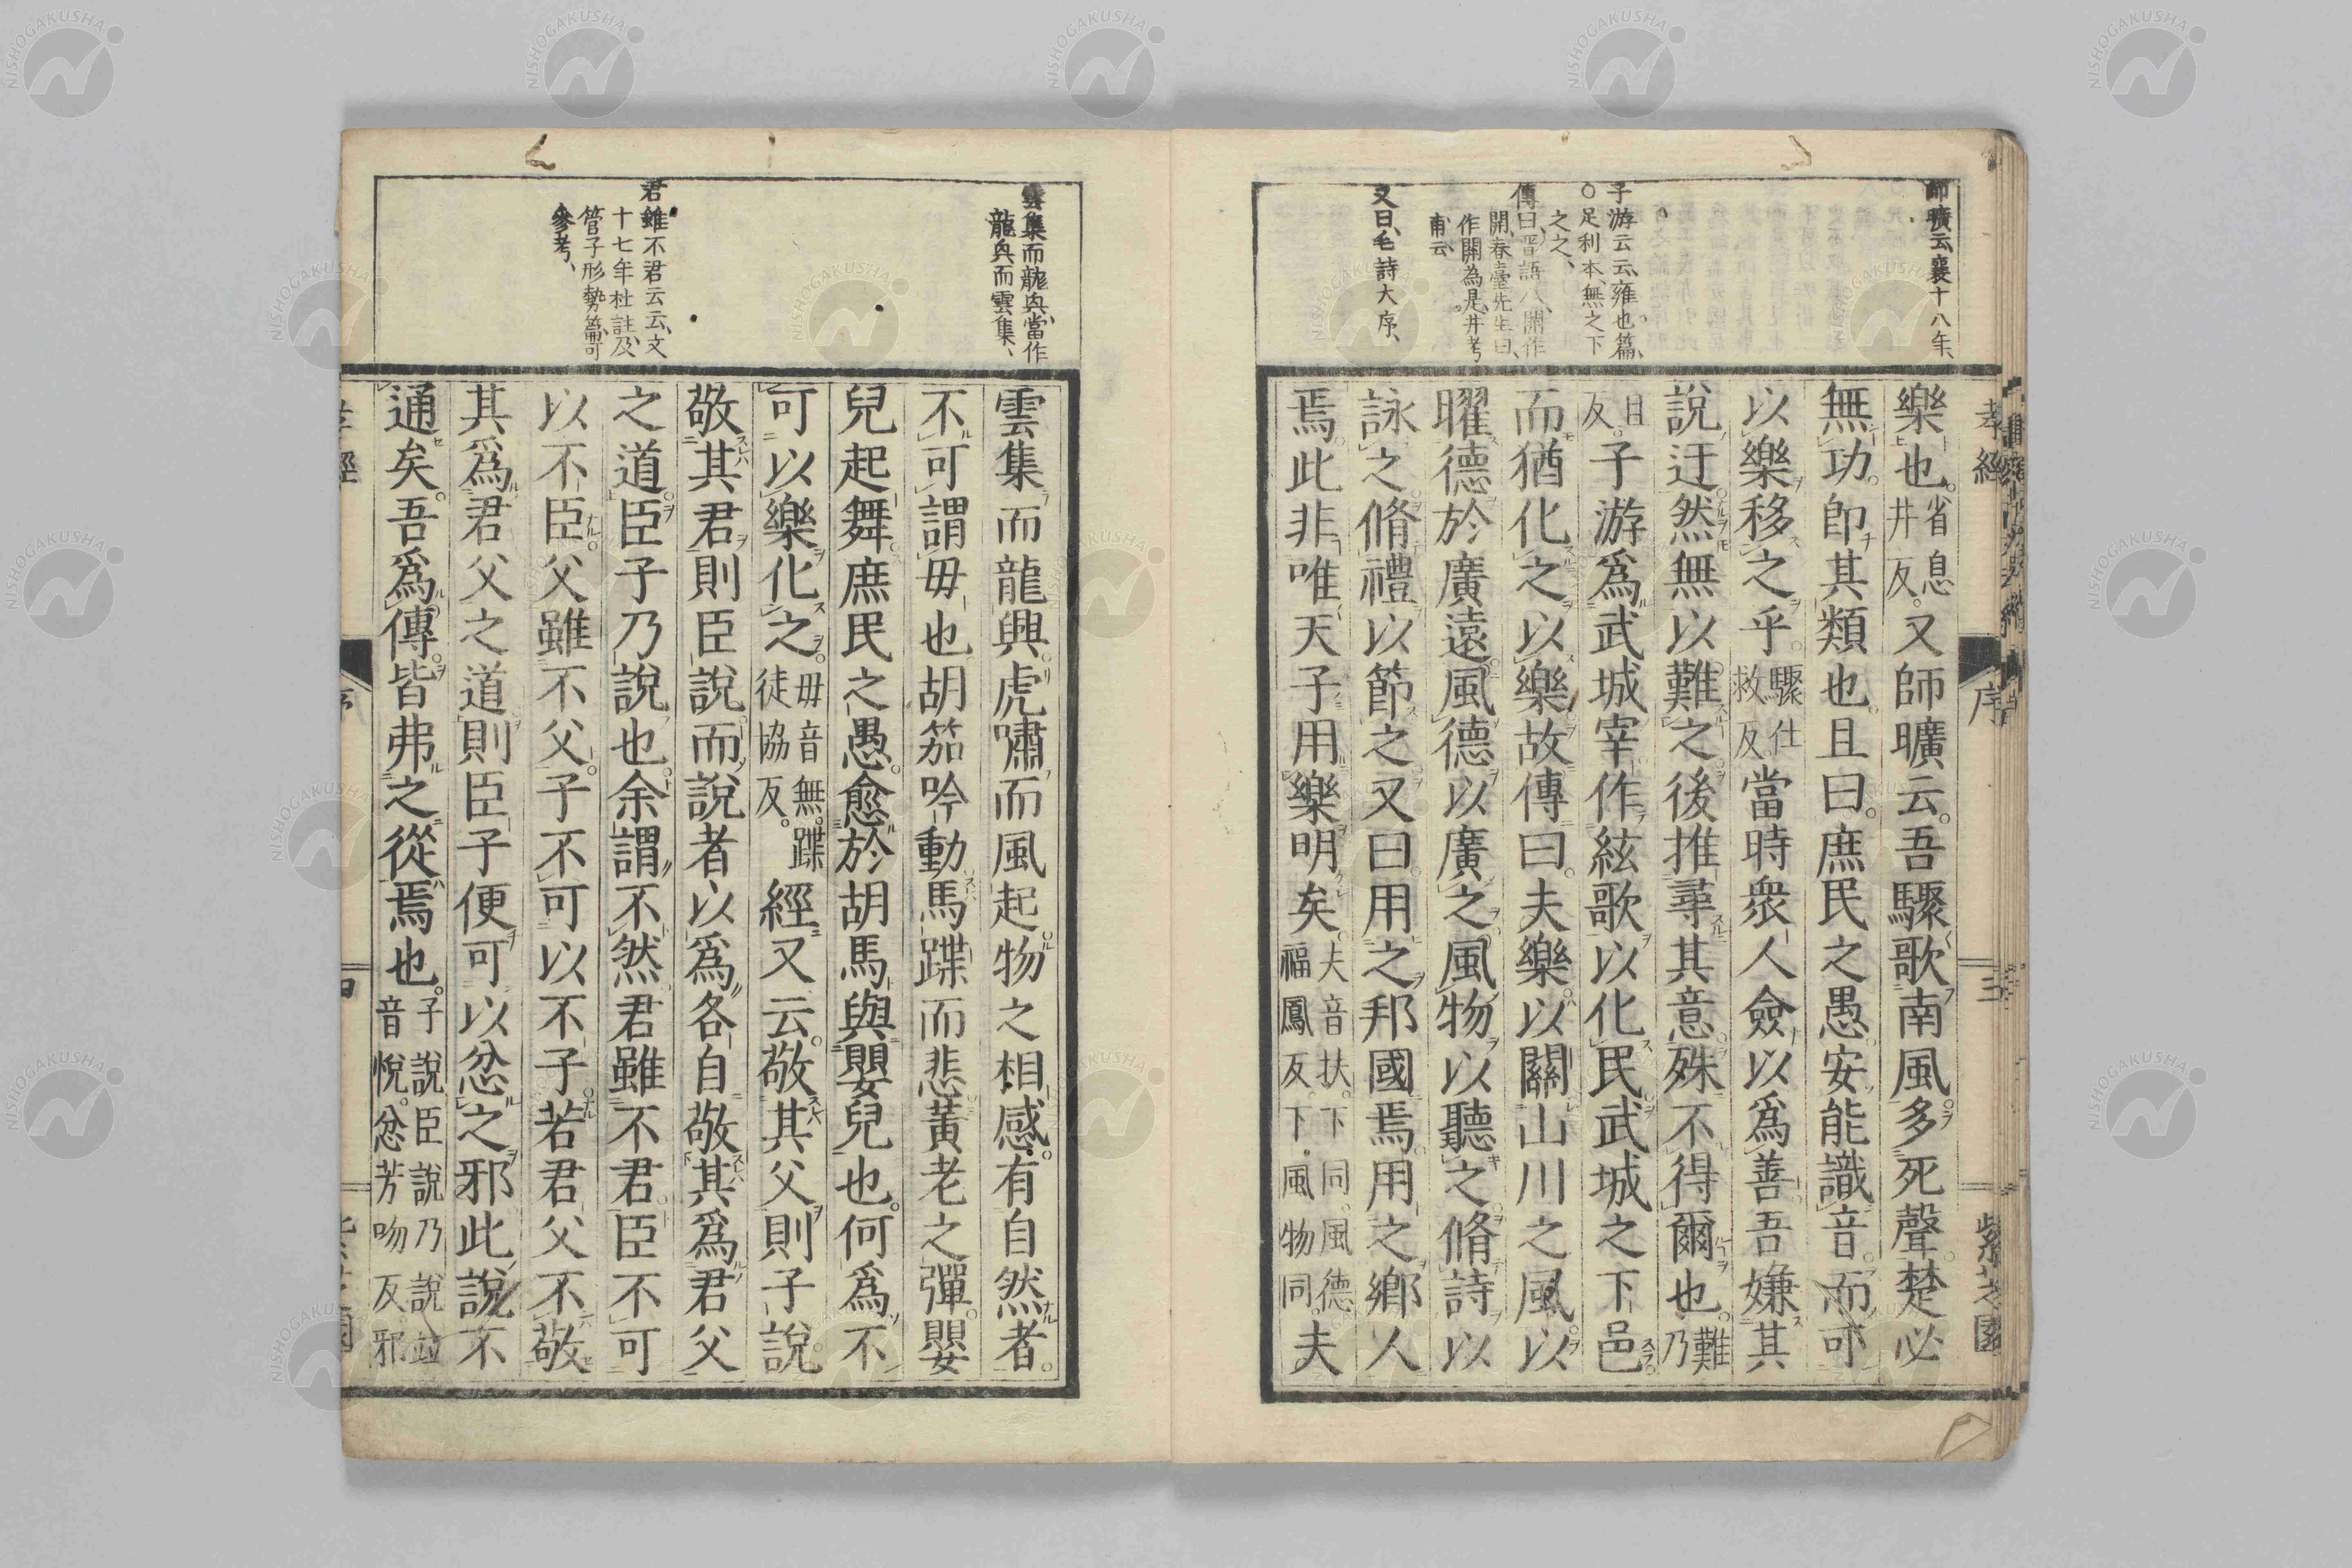 師曠云、襄十八年、
子游云云、雍也篇、
○足利本、無之下
之之、
傳曰、晉語八、開作
開、春臺先生曰、
作開為是、井考
甫云、
又曰、毛詩大序、
孝經
序
三
紫芝園
樂也。省息井反。又師曠云。吾驟歌南風多死聲。楚必
無功。卽其類也。且曰。庶民之愚。安能識音。而可
以樂移之乎。驟仕救反。當時衆人僉以爲善。吾嫌其
說迂。然無以難之。後推尋其意。殊不得爾也。難乃
旦反。子游爲武城宰。作絃歌以化民。武城之下邑。
而猶化之以樂。故傳曰。夫樂以關山川之風。以
曜德於廣遠。風德以廣之。風物以聽之。脩詩以
詠之。脩禮以節之。又曰。用之邦國焉。用之鄉人
焉。此非唯天子用樂明矣。夫音扶。下同。風德福鳳反。下風物同。夫
雲集而龍興、當作
龍興而雲集、
君雖不君云云、文
十七年杜註、及
管子形勢篇、可
參考、
雲集而龍興。虎嘯而風起。物之相感。有自然者。
不可謂毋也。胡笳吟動。馬蹀而悲。黃老之彈。嬰
兒起舞。庶民之愚。愈於胡馬與嬰兒也。何爲不
可以樂化之。毋音無。蹀徒協反。經又云。敬其父則子說。
敬其君則臣說。而說者以爲各自敬其爲君父
之道。臣子乃說也。余謂不然。君雖不君。臣不可
以不臣。父雖不父。子不可以不子。若君父不敬
其爲君父之道。則臣子便可以忿之邪。此說不
通矣。吾爲傳皆弗之從焉也。子說臣說乃說竝音悅。忿芳吻反。邪
孝經